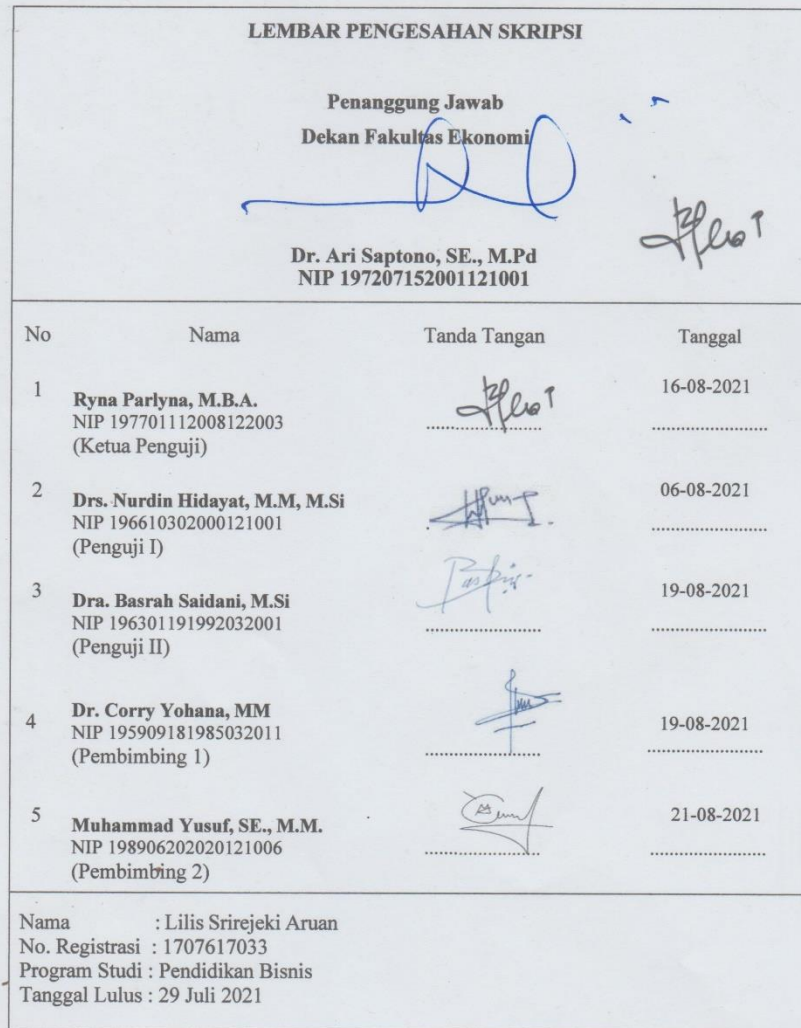 LEMBAR PENGESAHAN SKRIPSI
Penanggung Jawab
Dekan Fakultas Ekonomi
Dr. Ari Saptono, SE., M.Pd
NIP 197207152001121001
No Nama Tanda Tangan Tanggal
1 Ryna Parlyna, M.B.A. 16-08-2021
NIP 197701112008122003
(Ketua Penguji)
2 Drs. Nurdin Hidayat, M.M, M.Si 06-08-2021
NIP 196610302000121001
(Penguji I)
3 Dra. Basrah Saidani, M.Si 19-08-2021
NIP 196301191992032001
(Penguji II)
4 Dr. Corry Yohana, MM 19-08-2021
NIP 195909181985032011
(Pembimbing 1)
5 Muhammad Yusuf, SE., M.M. 21-08-2021
NIP 198906202020121006
(Pembimbing 2)
Nama : Lilis Srirejeki Aruan
No. Registrasi : 1707617033
Program Studi : Pendidikan Bisnis
Tanggal Lulus : 29 Juli 2021